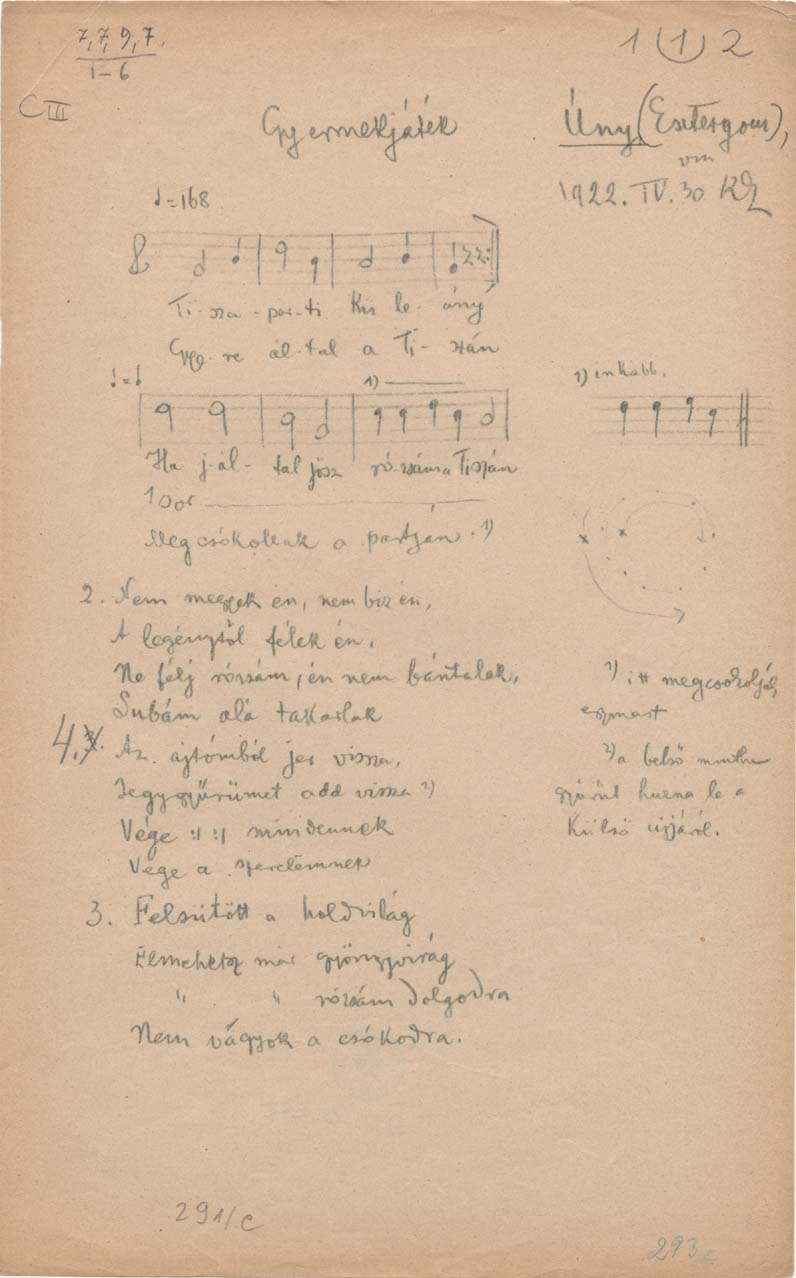 7, 7, 9, 7.
1–6
C III
1 (1) 2
Gyermekjáték
Úny (Esztergom),
vm
1922. IV. 30 KZ
♩=168
Ti-sza-par-ti kis le-ány
Gye-re ál-tal a Ti-szán
1)
1) inkább.
Ha j-ál-tal jösz ró-zsám a Tiszán
Megcsókollak a partján. 1)
2. Nem megyek én, nem biz én,
A legénytől félek én.
Ne félj rózsám, én nem bántalak,
Subám alá takarlak
1) itt megcsókolják
egymást
4. Az ajtómból jer vissza,
Jegygyűrümet add vissza 2)
Vége :| :| mindennek
Vége a szerelemnek
2) a belső mintha
gyűrűt huzna le a
külső ujjáról.
3. Felsütött a holdvilág
Elmehetsz már gyöngyvirág
" " rózsám dolgodra
Nem vágyok a csókodra.
291/c
293c